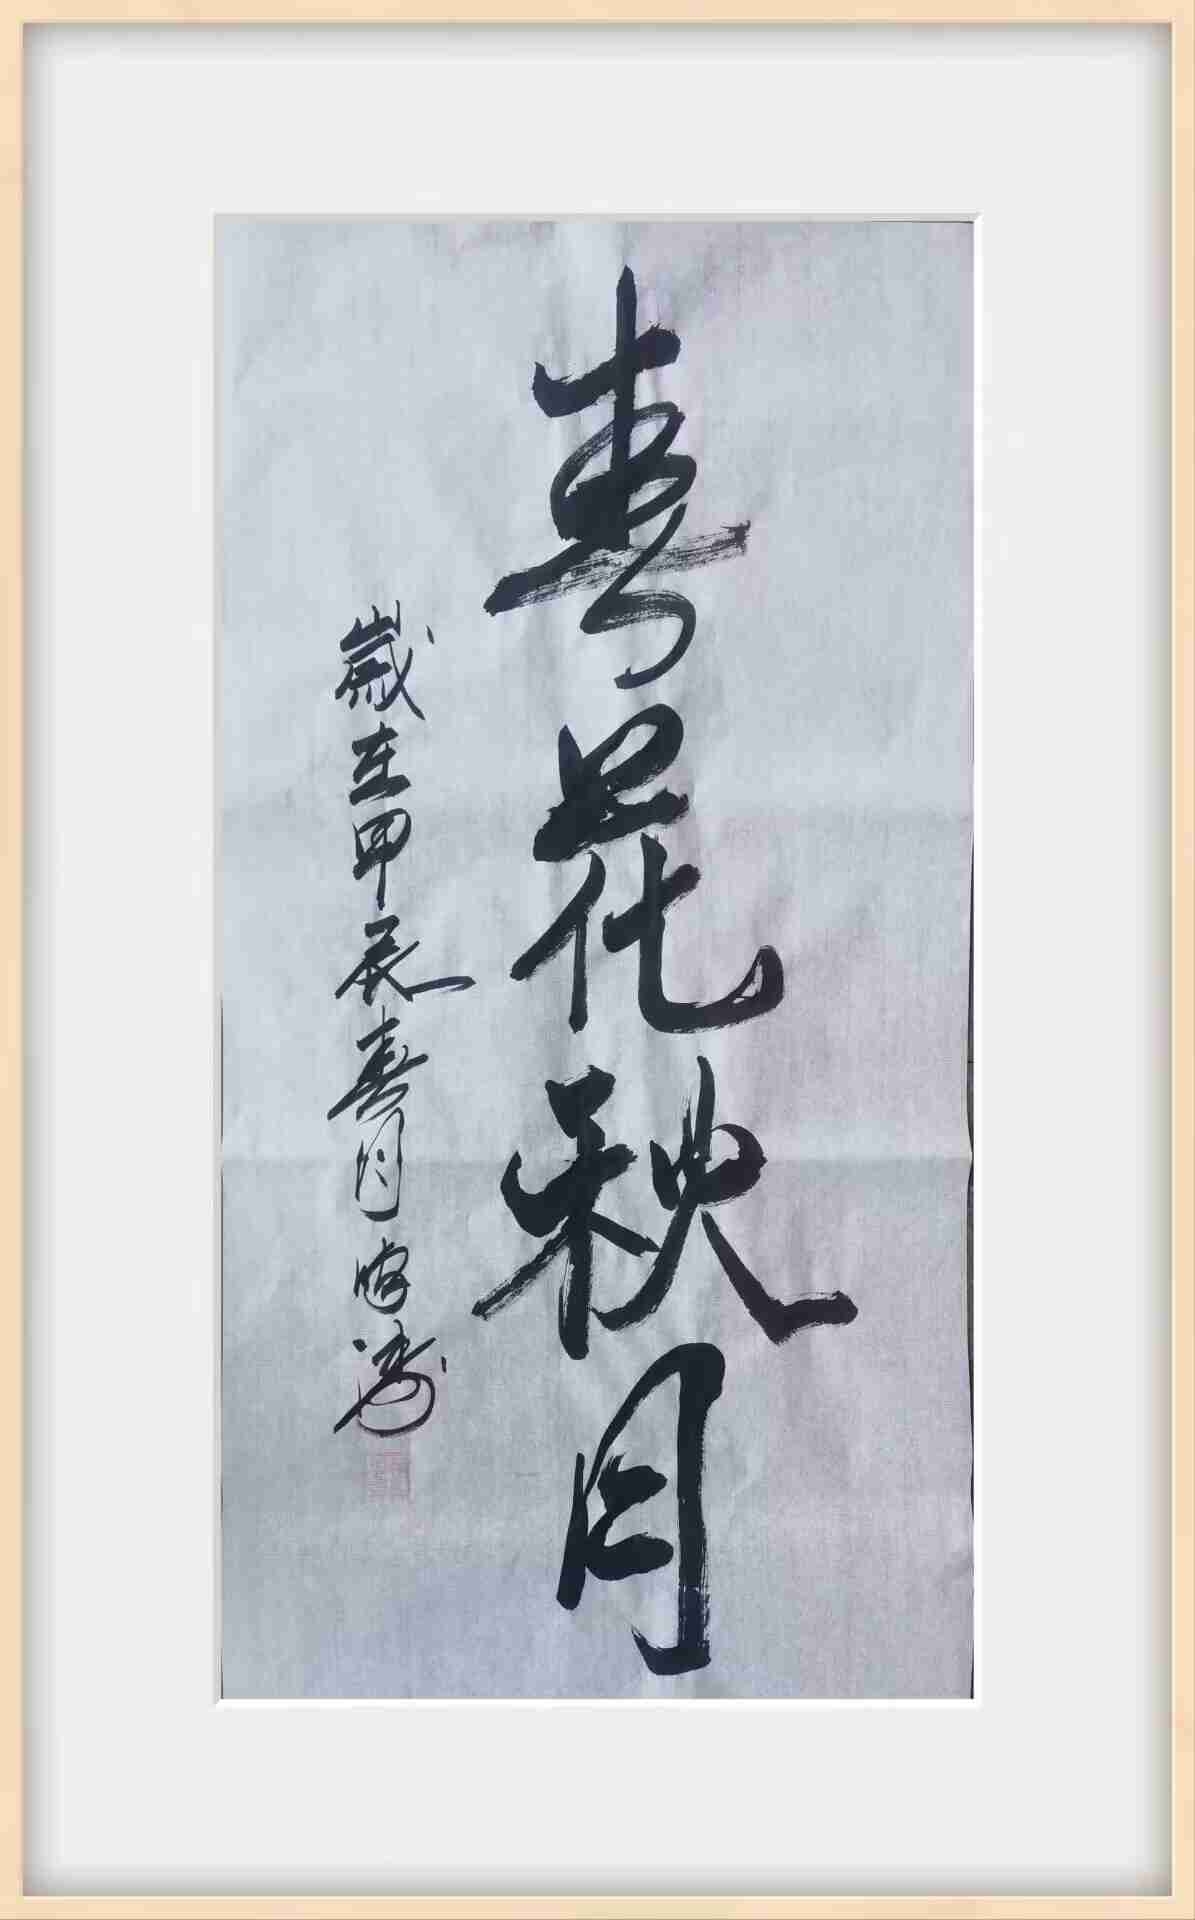 春花秋月
歲在甲辰春月